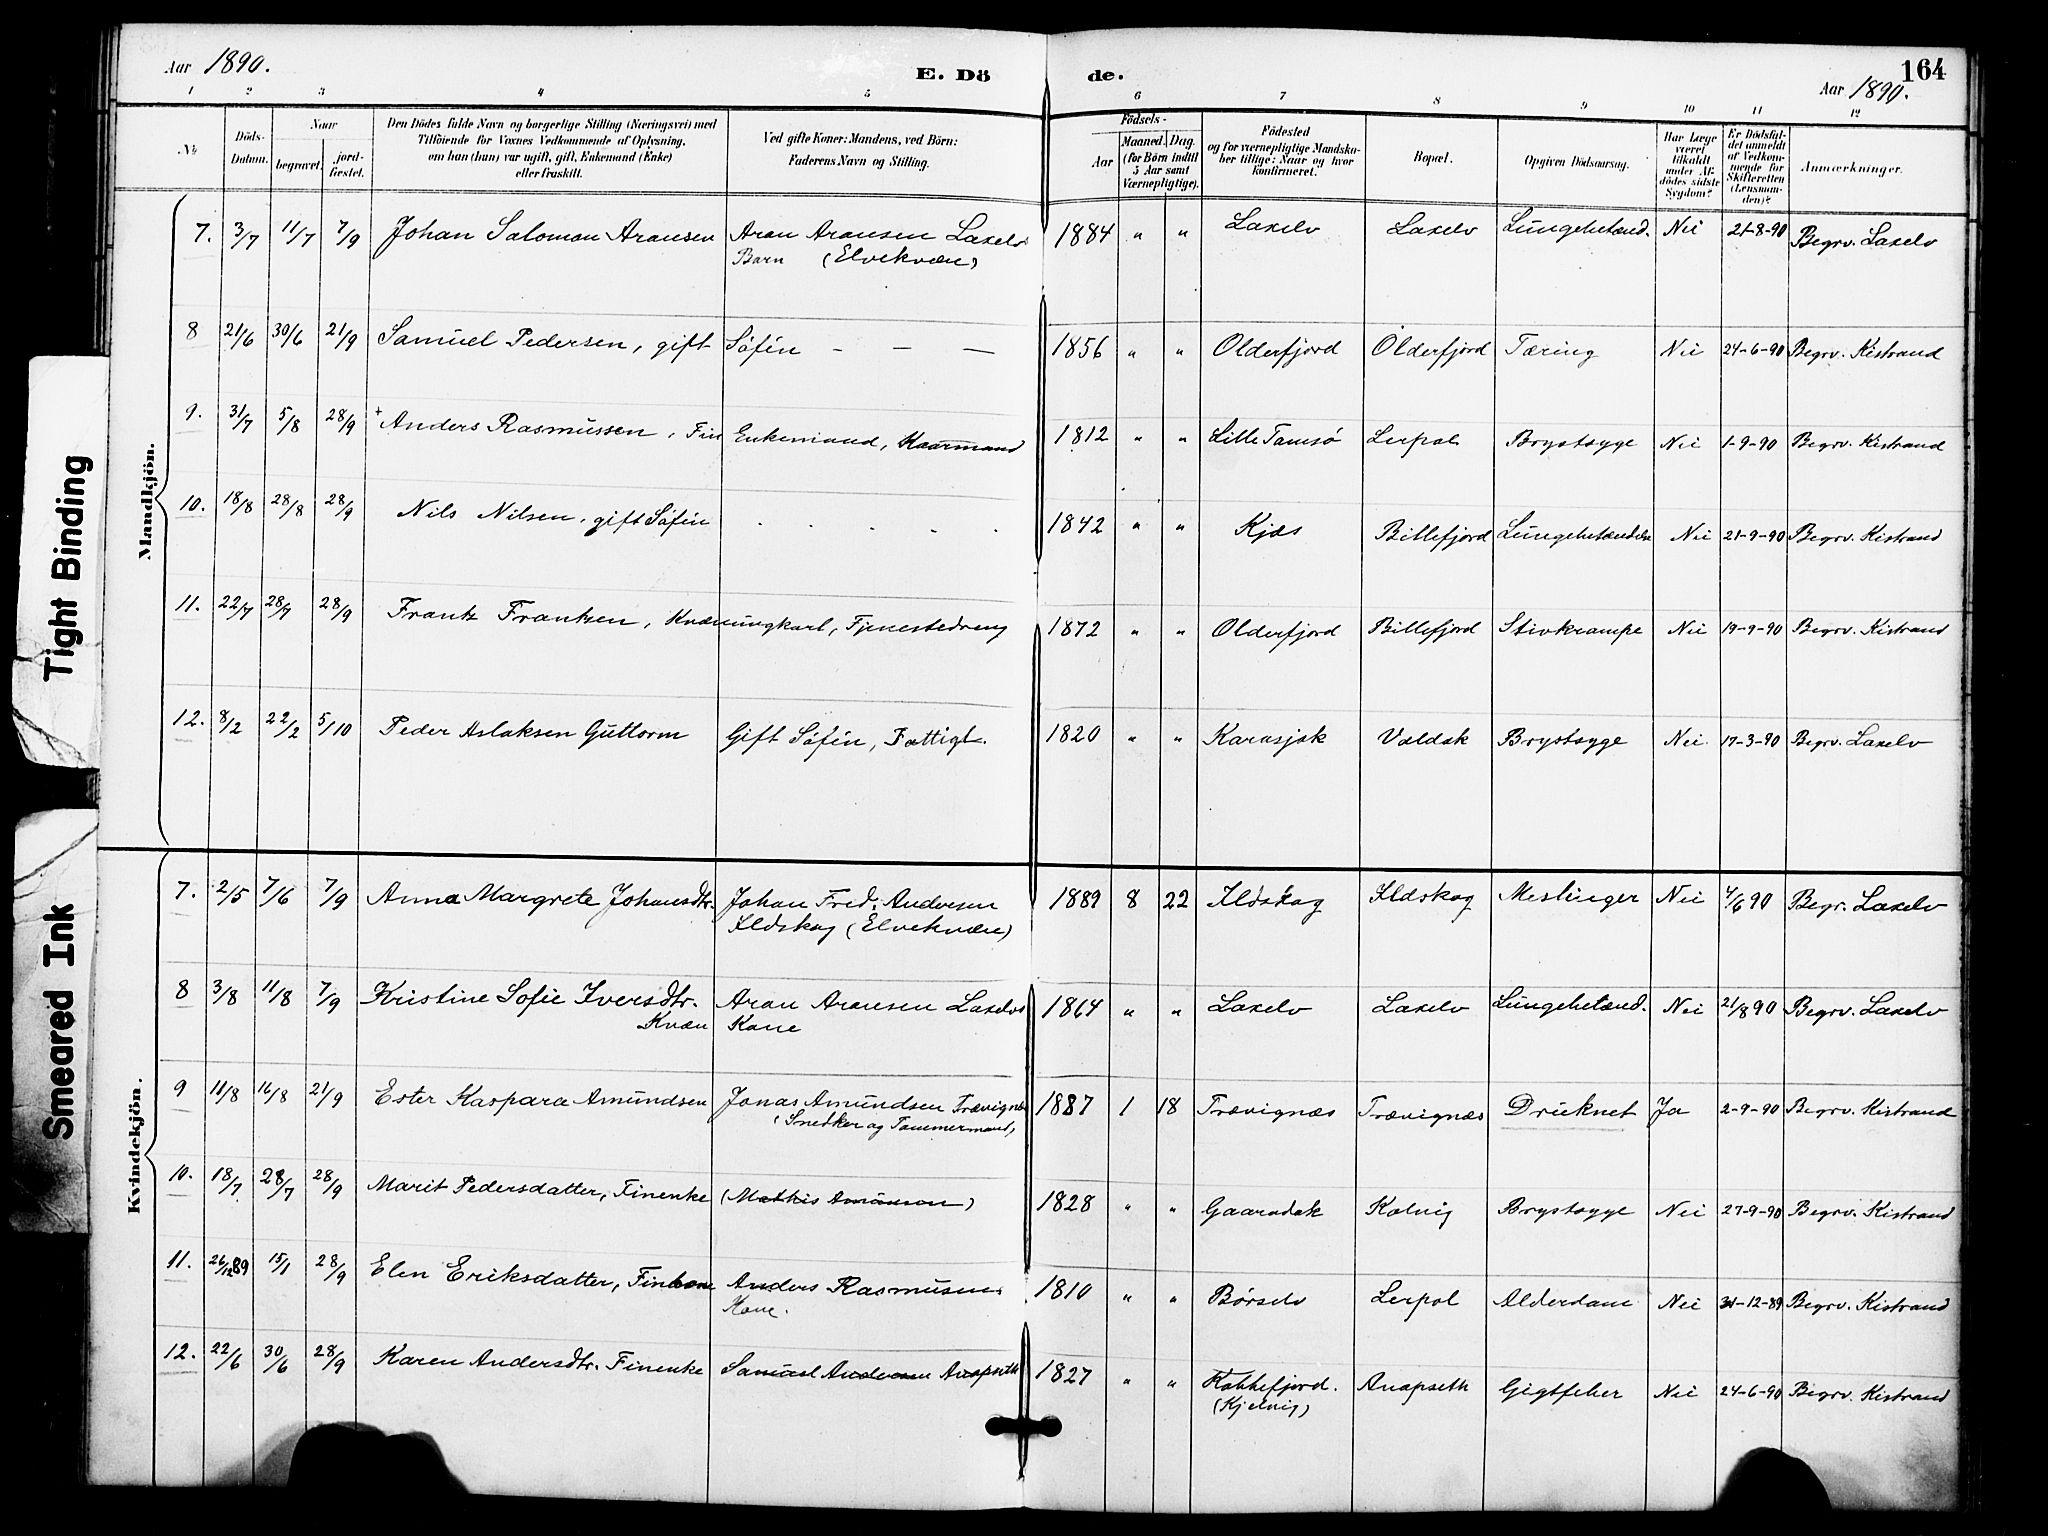 Aar 1890.
E. Dö de.
164
Aar 1890.
1 2 3 4 5 6 7 8 9 10 11 12
№
Döds-Datum.
Naar
begravet.
jord-fæstet.
Den Dödes fulde Navn og borgerlige Stilling (Næringsvei) med
Tilföiende for Voxnes Vedkommende af Oplysning,
om han (hun) var ugift, gift, Enkemand (Enke)
eller fraskilt.
Ved gifte Koner: Mandens, ved Börn:
Faderens Navn og Stilling.
Födsels-
Aar
Maaned. Dag.
(for Börn indtil
5 Aar samt
Værnepligtige).
Födested
og for værnepligtige Mandska-
ber tillige: Naar og hvor
konfirmeret.
Bopæl.
Opgiven Dödsaarsag.
Har Læge
været
tilkaldt
under Af-
dödes sidste
Sygdom?
Er Dödsfal-
det anmeldt
af Vedkom-
mende for
Skifteretten
(Lensman-
den)?
Anmærkninger.
Mandkjön.
7. 3/7 11/7 7/9 Johan Salomon Aronsen Aron Aronsen Laxelv 1884 " " Laxelv Laxelv Lungebetænd. Nei 21-8-90 Begrv. Laxelv
Barn (Elvekvæn)
8 21/6 30/6 21/9 Samuel Pedersen, gift Søfin - - - 1856 " " Olderfjord Olderfjord Tæring Nei 24-6-90 Begrv. Kistrand
9. 31/7 5/8 28/9 + Anders Rasmussen, Fin Enkemand, Kaarmand 1812 " " Lille Tamsø Lerpol Brystsyge Nei 1-9-90 Begrv. Kistrand
10. 18/8 28/8 28/9 Nils Nilsen, gift Søfin . . . . . 1842 " " Kjæs Billefjord Lungebetændelse Nei 21-9-90 Begrv. Kistrand
11. 22/7 28/7 28/9 Frantz Frantzen, Kvænungkarl, Tjenestedreng 1872 " " Olderfjord Billefjord Stivkrampe Nei 19-9-90 Begrv. Kistrand
12. 8/2 22/2 5/10 Peder Aslaksen Guttorm Gift Søfin, Fattigl. 1820 " " Karasjok Valdak Brystsyge Nei. 17-3-90 Begrv. Laxelv
Kvindekjön.
7. 2/5 7/6 7/9 Anna Margrete Johansdtr. Johan Fred. Andersen 1889 8 22 Ildskog Ildskog Meslinger Nei 4/6 90 Begr. Laxelv
Ildskog (Elvekvæn)
8 3/8 11/8 7/9 Kristine Sofie Iversdtr. Aron Aronsen Laxelvs 1864 " " Laxelv Laxelv Lungebetænd. Nei 21/8 90 Begrv. Laxelv
Kvæn Kone
9 11/8 16/8 21/9 Ester Kaspara Amundsen Jonas Amundsen Trævignæs 1887 1 18 Trævignæs Trævignæs Druknet Ja 2-9-90 Begrv. Kistrand
(Snedker og Tømmermand)
10. 18/7 28/7 28/9 Marit Pedersdatter, Finenke (Mathis Amonson) 1828 " " Gaaradak Kolvig Brystsyge Nei 27-9-90 Begrv. Kistrand
11. 26/12 89 15/1 28/9 Elen Eriksdatter, Finkone Anders Rasmusens 1810 " " Børselv Lerpol Alderdom Nei 31-12-89 Begrv. Kistrand
Kone.
12. 22/6 30/6 28/9 Karen Andersdtr. Finenke Samuel Andersen Anopseth 1827 " " Kobbefjord. Anopseth Gigtfeber Nei 24-6-90 Begrv. Kistrand
(Kjelvig)
Tight Binding
Smeared Ink